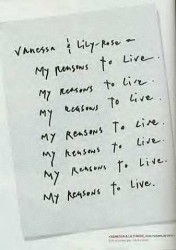 Vanessa & Lily-Rose -
My Reasons to Live.
My Reasons to Live.
My Reasons to Live.
My Reasons to Live.
My Reasons to Live.
My Reasons to Live.
My Reasons to Live.